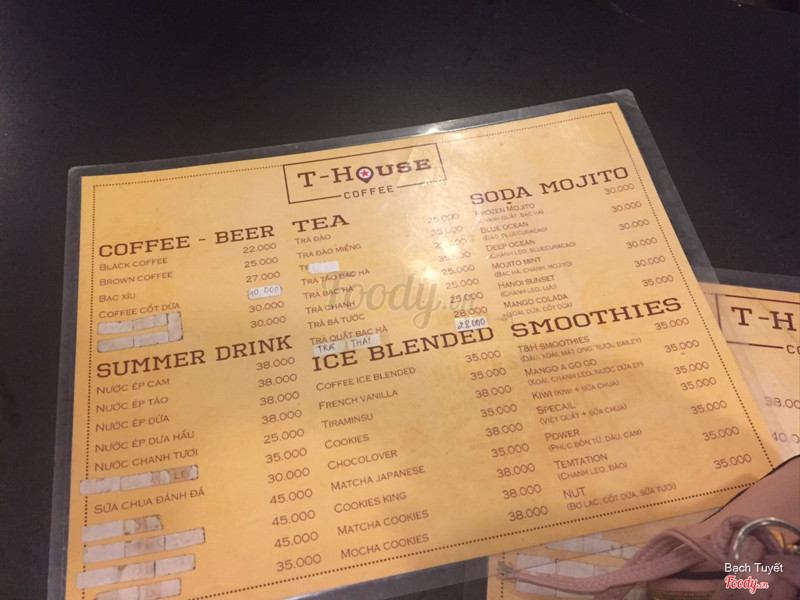 T-HOUSE
COFFEE
COFFEE - BEER
BLACK COFFEE 22.000
BROWN COFFEE 25.000
BẠC XỈU 27.000
COFFEE CỐT DỪA 40.000
30.000
30.000
SUMMER DRINK
NƯỚC ÉP CAM 38.000
NƯỚC ÉP TÁO 38.000
NƯỚC ÉP DỨA 38.000
NƯỚC ÉP DƯA HẤU 38.000
NƯỚC CHANH TƯƠI 25.000
35.000
SỮA CHUA ĐÁNH ĐÁ 30.000
45.000
45.000
45.000
35.000
TEA
TRÀ ĐÀO 25.000
TRÀ ĐÀO MIẾNG 35.000
TRÀ TÁO BẠC HÀ
TRÀ BẠC HÀ 25.000
TRÀ CHANH 25.000
TRÀ BÁ TƯỚC 25.000
TRÀ QUẤT BẠC HÀ 28.000
TRÀ THÁI 28.000
ICE BLENDED
COFFEE ICE BLENDED 35.000
FRENCH VANILLA 35.000
TIRAMINSU 38.000
COOKIES 35.000
CHOCOLOVER 38.000
MATCHA JAPANESE 35.000
COOKIES KING 38.000
MATCHA COOKIES 38.000
MOCHA COOKIES 38.000
SODA MOJITO
FROZEN MOJITO 30.000
(CHANH, QUẤT, BẠC HÀ)
BLUE OCEAN 30.000
(ĐÀO, BLUECURACAO)
DEEP OCEAN 30.000
(CHANH LEO, BLUECURACAO)
MOJITO MINT 30.000
(BẠC HÀ, CHANH, MOJITO)
HANOI SUNSET 30.000
(CHANH LEO, LỰU)
MANGO COLADA 35.000
(XOÀI, DỨA, CỐT DỪA)
SMOOTHIES
T&H SMOOTHIES 35.000
(DÂU, XOÀI, MẬT ONG, RƯỢU BAILEY)
MANGO A GO GO 35.000
(XOÀI, CHANH LEO, NƯỚC DỨA ÉP)
KIWI (KIWI + SỮA CHUA) 35.000
SPECAIL 35.000
(VIỆT QUẤT + SỮA CHUA)
POWER 35.000
(PHÚC BỒN TỬ, DÂU, CAM)
TEMTATION 35.000
(CHANH LEO, ĐÀO)
NUT 35.000
(BƠ LẠC, CỐT DỪA, SỮA TƯƠI)
T-HO
38.00
40.0
Foody.vn
Bạch Tuyết
Foody.vn